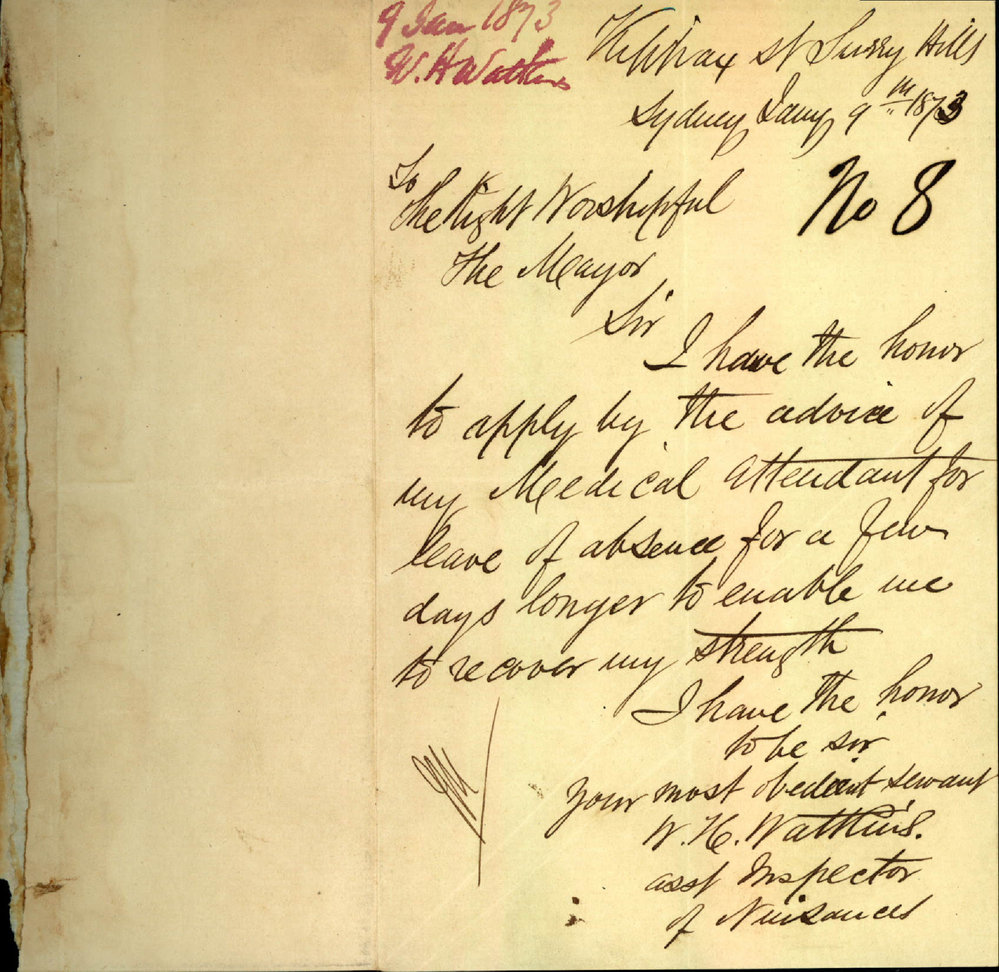 9 Jan 1873
W. H Watkins
Kippax st Surry Hills
Sydney Jany 9th 1873
No 8
To
The Right Worshipful
The Mayor
Sir
I have the honor
to apply by the advice of
my Medical Attendant for
leave of absence for a few
days longer to enable me
to recover my strength
I have the honor
to be sir
Your most obedient servant
W. H. Watkins.
asst Inspector
of Nuisances